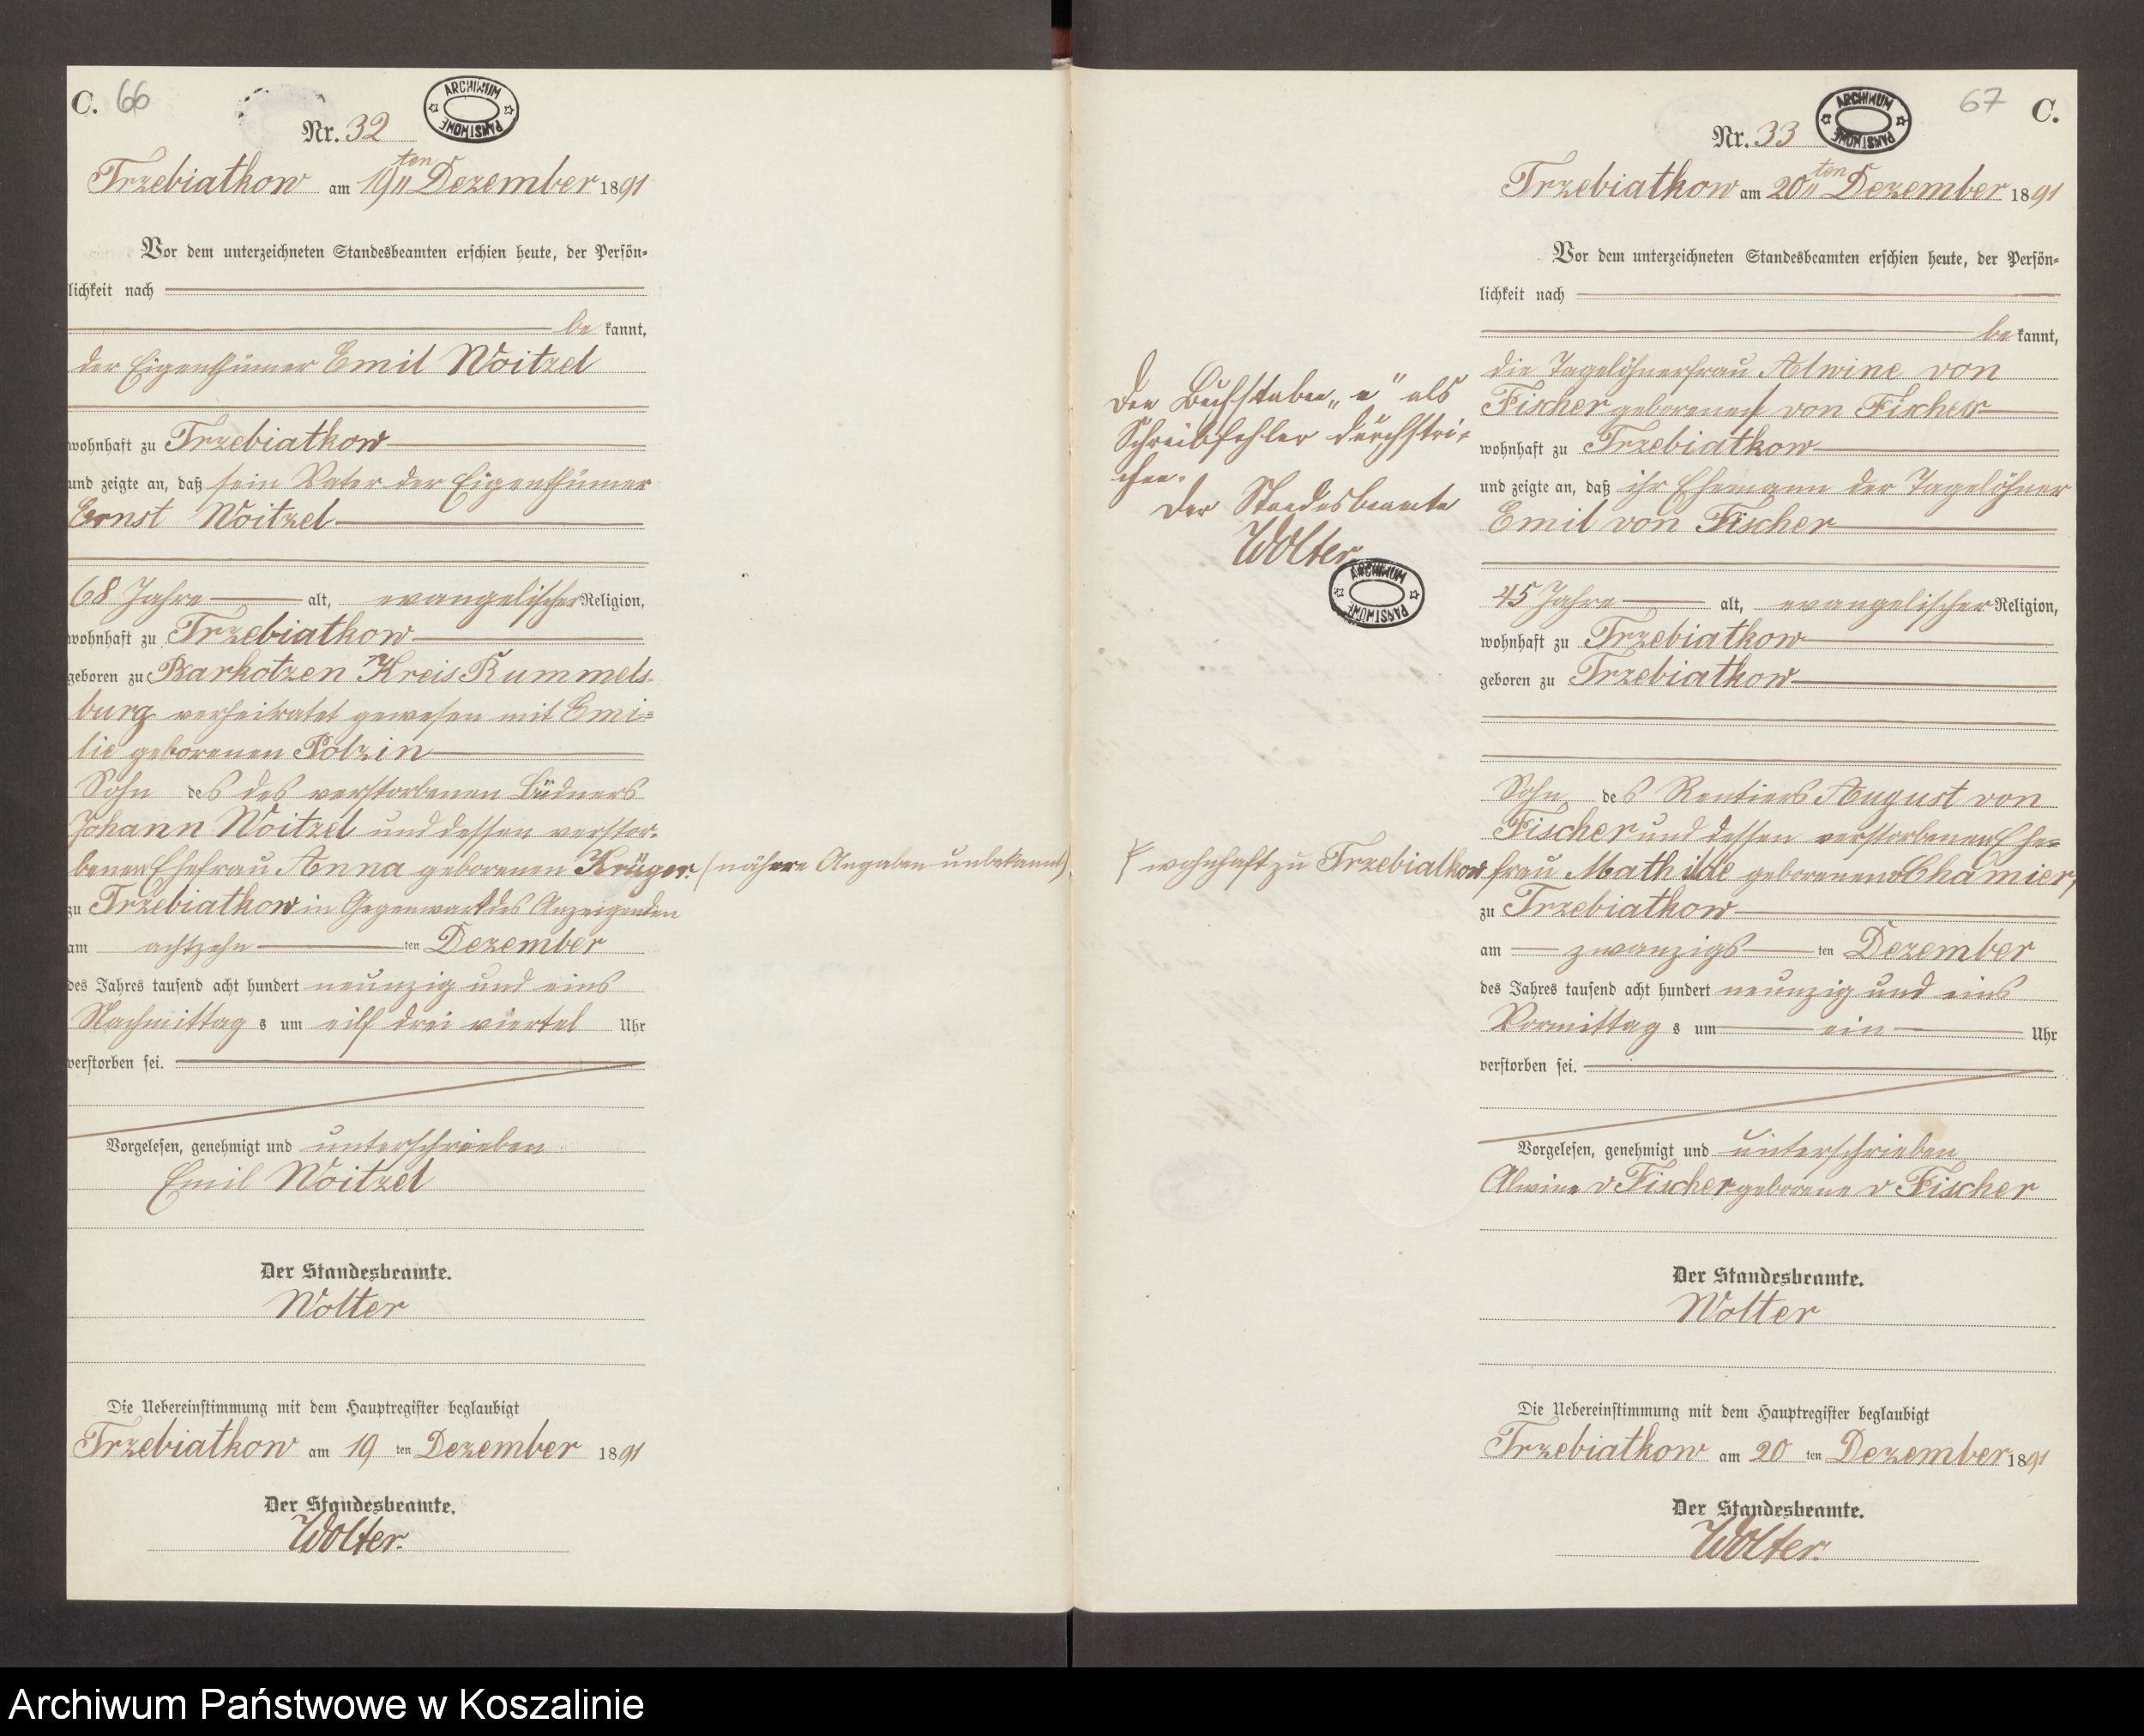 C. 66
ARCHIWUM PAŃSTWOWE
Nr. 32
Trzebiatkow am 19ten Dezember 1891
Vor dem unterzeichneten Standesbeamten erschien heute, der Persön-
lichkeit nach
be kannt,
der Eigenthümer Emil Woitzel
wohnhaft zu Trzebiatkow
und zeigte an, daß sein Vater der Eigenthümer
Ernst Woitzel
68 Jahre alt, evangelischer Religion,
wohnhaft zu Trzebiatkow
geboren zu Barkotzen Kreis Rummels-
burg verheiratet gewesen mit Emi-
lie geborenen Polzin
Sohn des des verstorbenen Büdners
Johann Woitzel und dessen verstor-
benen Ehefrau Anna geborenen Krüger. (nähere Angaben unbekannt)
zu Trzebiatkow in Gegenwart des Anzeigenden
am achtzehn ten Dezember
des Jahres tausend acht hundert neunzig und eins
Nachmittag s um eilf drei viertel Uhr
verstorben sei.
Vorgelesen, genehmigt und unterschrieben
Emil Woitzel
Der Standesbeamte.
Wolter
Die Uebereinstimmung mit dem Hauptregister beglaubigt
Trzebiatkow am 19 ten Dezember 1891
Der Standesbeamte.
Wolter.
67 C.
ARCHIWUM PAŃSTWOWE
Nr. 33
Trzebiatkow am 20ten Dezember 1891
Vor dem unterzeichneten Standesbeamten erschien heute, der Persön-
lichkeit nach
be kannt,
die Tagelöhnerfrau Alwine von
Fischer geborene von Fischer
wohnhaft zu Trzebiatkow
und zeigte an, daß ihr Ehemann der Tagelöhner
Emil von Fischer
45 Jahre alt, evangelischer Religion,
wohnhaft zu Trzebiatkow
geboren zu Trzebiatkow
Sohn des Rentiers August von
Fischer und dessen verstorbenen Ehe-
frau Mathilde geborenen v Chamier,
zu Trzebiatkow
am zwanzigs ten Dezember
des Jahres tausend acht hundert neunzig und eins
Vormittag s um ein Uhr
verstorben sei.
Vorgelesen, genehmigt und unterschrieben
Alwine v Fischer geborene v Fischer
Der Standesbeamte.
Wolter
Die Uebereinstimmung mit dem Hauptregister beglaubigt
Trzebiatkow am 20 ten Dezember 1891
Der Standesbeamte.
Wolter.
Den Buchstaben „n" als
Schreibfehler durchstri-
chen.
Der Standesbeamte
Wolter
ARCHIWUM PAŃSTWOWE
wohnhaft zu Trzebiatkow
Archiwum Państwowe w Koszalinie